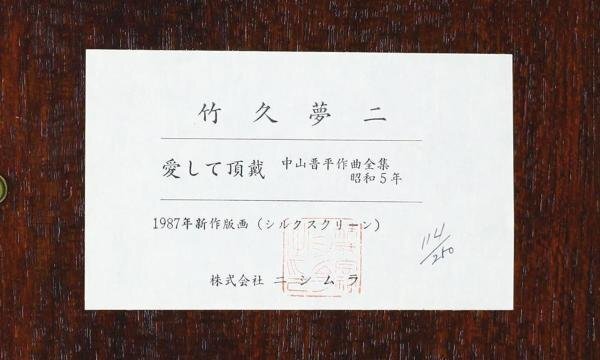 竹久夢二
愛して頂戴 中山晋平作曲全集
昭和5年
1987年新作版画（シルクスクリーン）
114/250
株式会社 ニシムラ